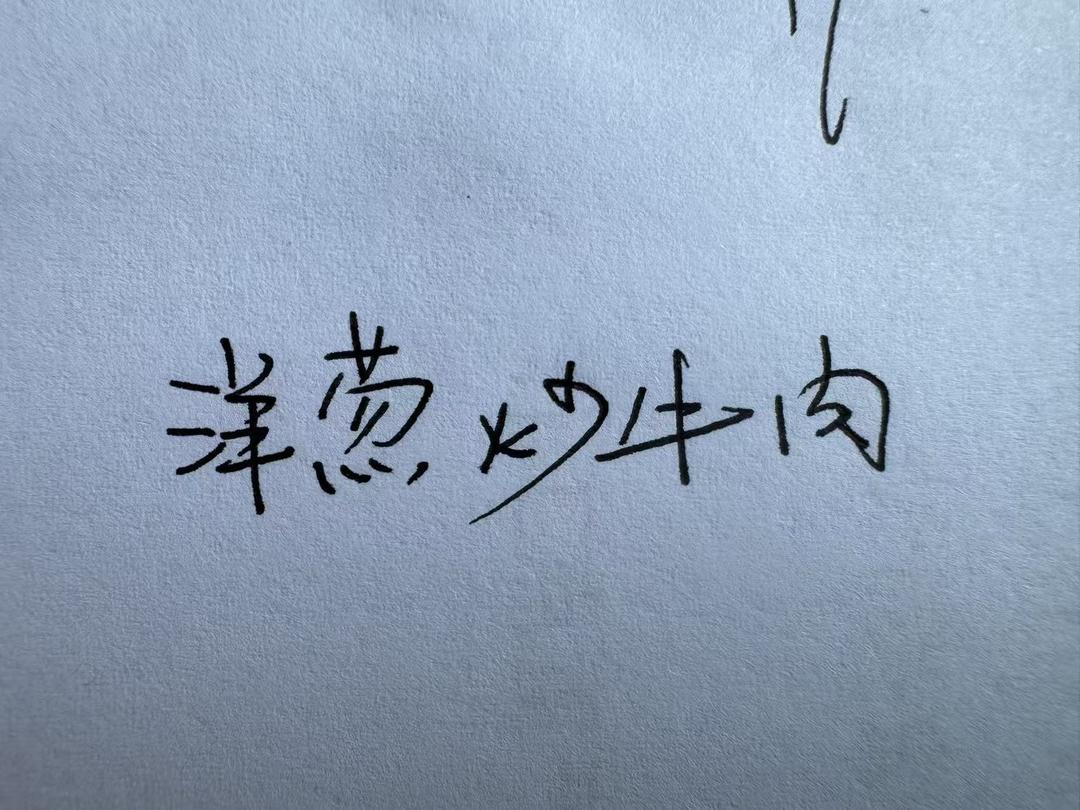 洋葱炒牛肉